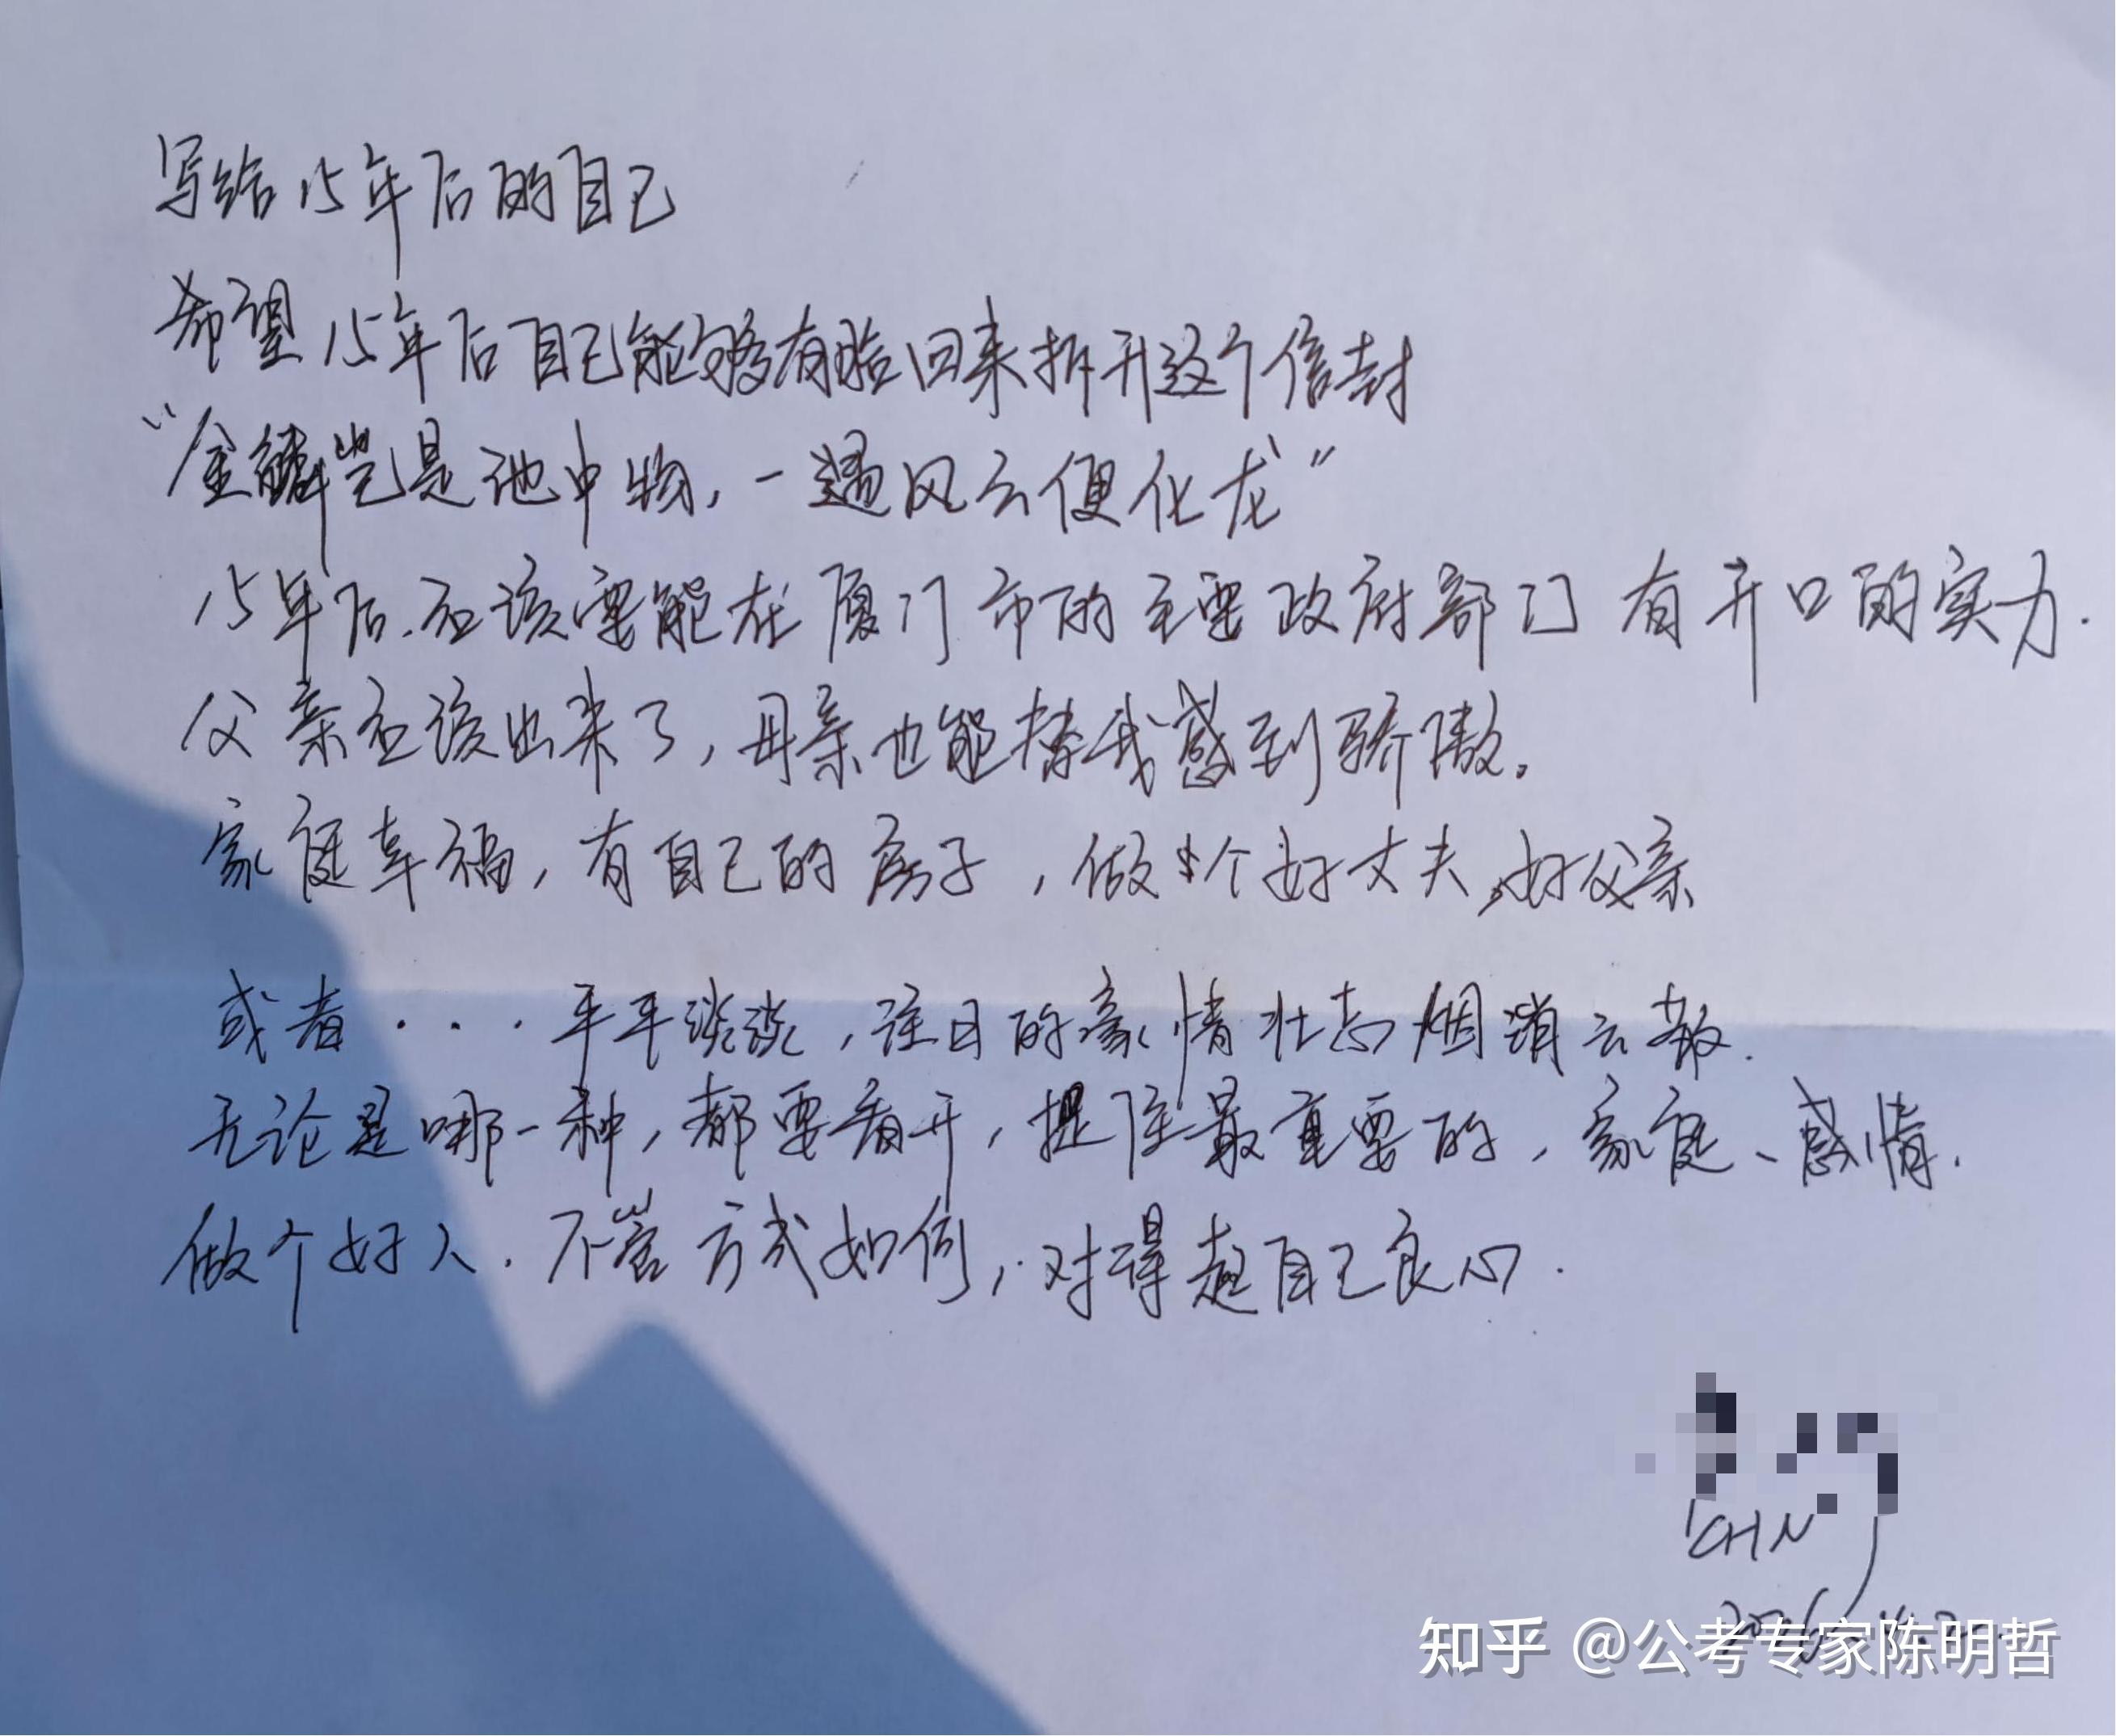 写给15年后的自己
希望15年后自己能够有脸回来拆开这个信封
“金鳞岂是池中物,一遇风云便化龙”
15年后.应该要能在厦门市的主要政府部门有开口的实力.
父亲应该出来了,母亲也能替我感到骄傲。
家庭幸福,有自己的房子,做个好丈夫,好父亲
或者...平平淡淡,往日的豪情壮志烟消云散.
无论是哪一种,都要看开,握住最重要的,家庭、感情.
做个好人.不管方式如何,对得起自己良心.
CHN
知乎 @公考专家陈明哲